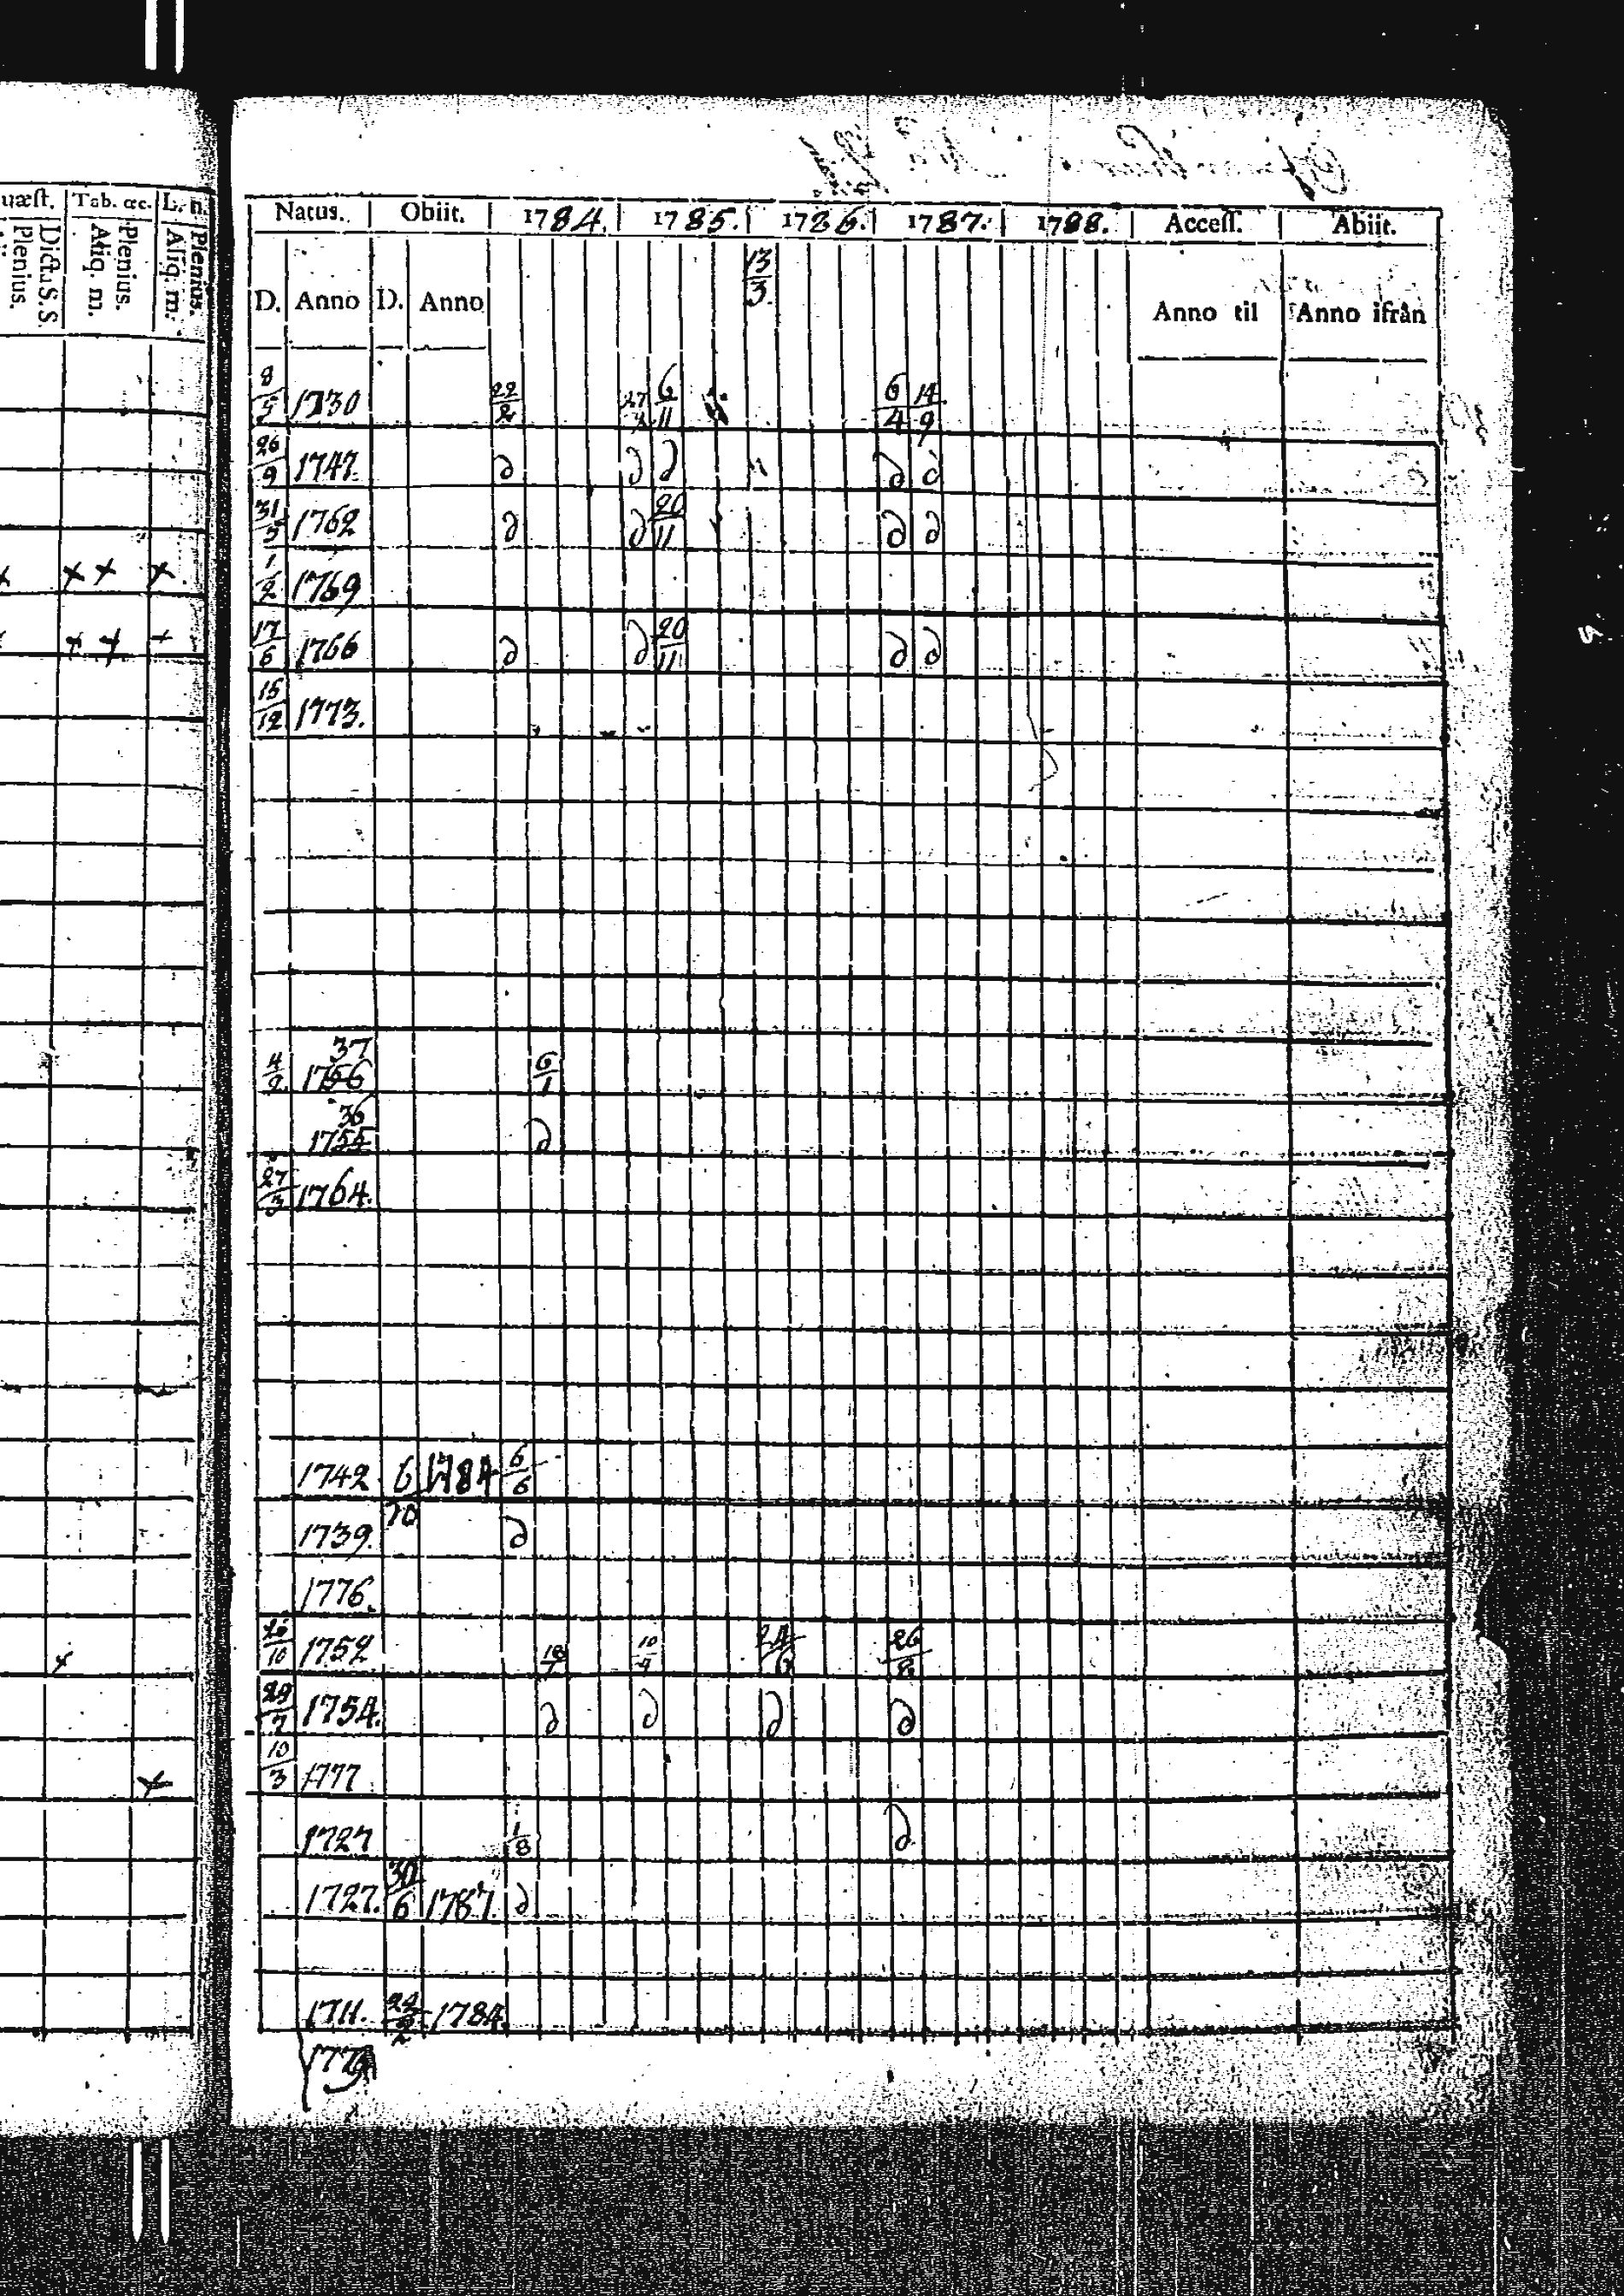 uæſt. Tab. œc. L. n.
Dict. S. S. Plenius. Plenius. Aliq. m. Plenius. Aliq. m.
Natus. Obiit. 1784. 1785. 1786. 1787. 1788. Acceſſ. Abiit.
D. Anno D. Anno 13/3. Anno til Anno ifrån
8/5 1730 22/2 6/11 6/4 14/9
26/9 1747. d d d d d
31/5 1762 d d 20/11 d d
1/2 1769
x x x
17/6 1766 d d 20/11 d d
x x x
15/12 1773.
37
4/9 1756 6/1
36
1755 d
27/3 1764.
1742 6/10 1784 6/6
1739. d
1776.
26/10 1752 18/7 10/4 24/6 26/8
x
29/7 1754. d d d d
10/3 1777
x
1727 1/8 d
1727. 30/6 1787. d
1711. 24/2 1784.